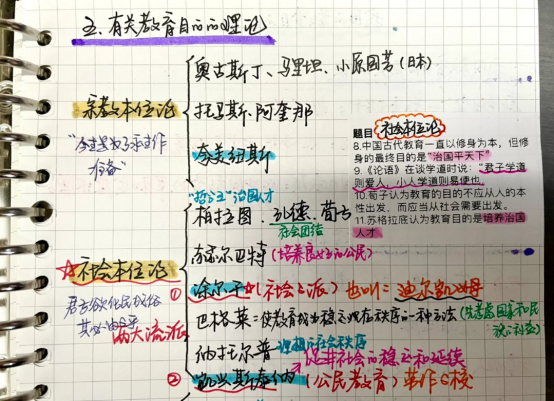 五、有关教育目的的理论
宗教本位论
奥古斯丁、马里坦、小原国芳（日本）
托马斯·阿奎那
夸美纽斯
"为来世永生作准备"
题目 社会本位论
8.中国古代教育一直以修身为本，但修
身的最终目的是"治国平天下"
9.《论语》在谈学道时说："君子学道
则爱人，小人学道则易使也"
10.荀子认为教育的目的不应从人的本
性出发，而应当从社会需要出发。
11.苏格拉底认为教育目的是培养治国
人才
"哲学王"治国人才
柏拉图、孔德、荀子
社会团结
赫尔巴特（培养良好的公民）
☆社会本位论
君子欲化民成俗
其必由学
两大流派
① 涂尔干（社会学派）也叫：迪尔凯姆
巴格莱：使教育成为稳定现存秩序的一种方法
纳托尔普 理想的社会秩序
促进社会的稳定和延续
② 凯兴斯泰纳（公民教育）劳作学校